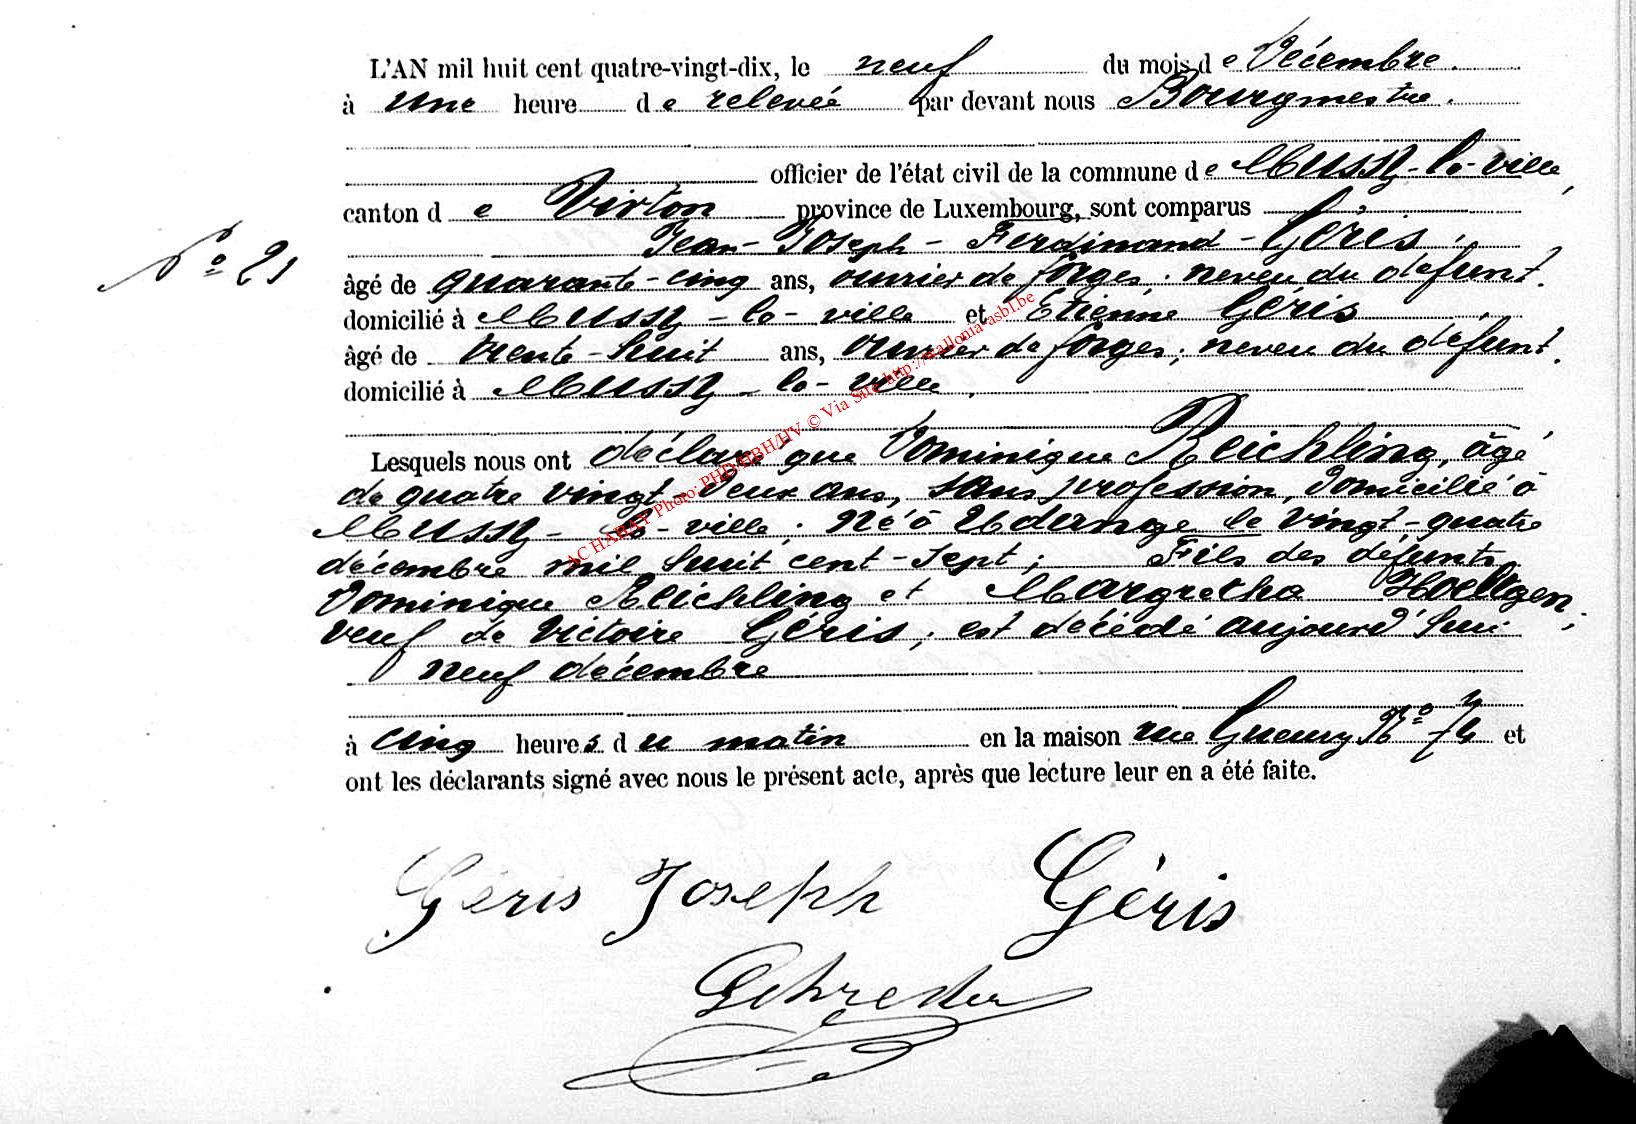 L'AN mil huit cent quatre-vingt-dix, le neuf du mois de Décembre.
à une heure de relevée par devant nous Bourgmestre.
officier de l'état civil de la commune de Mussy-la-ville,
canton de Virton province de Luxembourg, sont comparus
Jean-Joseph-Ferdinand-Géris,
No 21
âgé de quarante-cinq ans, ouvrier de forges, neveu du défunt.
domicilié à Mussy-la-ville et Etienne Géris
âgé de trente-huit ans, ouvrier de forges, neveu du défunt.
domicilié à Mussy-la-ville.
Lesquels nous ont déclaré que Dominique Reichling, âgé
de quatre vingt deux ans, sans profession, domicilié à
Mussy-la-ville, né à Udange le vingt-quatre
décembre mil huit cent-sept; Fils des défunts
Dominique Reichling et Margretha Hoeltgen;
veuf de Victoire Géris; est décédé aujourd'hui
neuf décembre
à cinq heures du matin en la maison rue No et
ont les déclarants signé avec nous le présent acte, après que lecture leur en a été faite.
Géris Joseph Géris
AC HABAY Photo: PHD/HBH/HV © Via Site http://wallonia-asbl.be